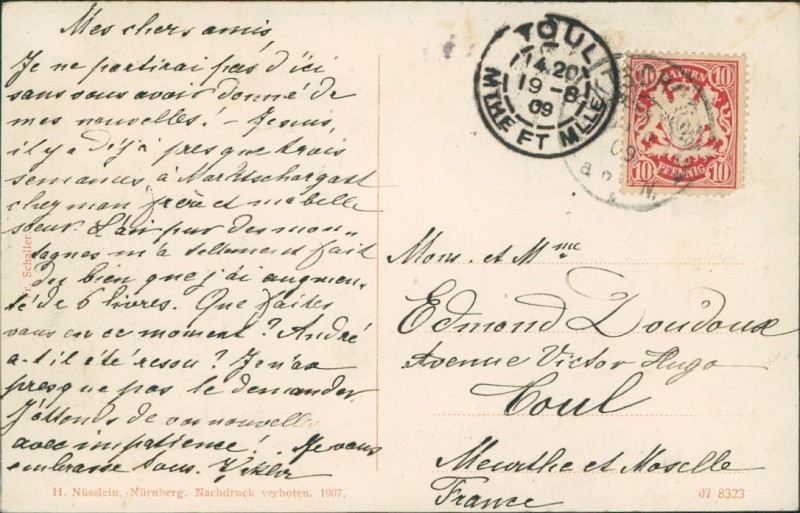 Mes chers amis,
Je ne partirai pas d'ici
sans vous avoir donné de
mes nouvelles! - Je suis,
il y a déjà presque trois
semaines à Marktschorgast
chez mon frère et ma belle
soeur. L'air pur des mon-
tagnes m'a tellement fait
du bien que j'ai augmen-
té de 6 livres. Que faites
vous en ce moment? André
a-t-il été ? Je n'ose
presque pas le demander.
J'attends de vos nouvelles
avec impatience! Je vous
embrasse tous.
Fr. Schaller
H. Nüsslein, Nürnberg. Nachdruck verboten. 1907.
TOUL
14.20
19 - 8
09
MTHE ET MLLE
BAYERN
10 10
10 PFENNIG 10
09
Mons. et Mme
Edmond Doudoux
Avenue Victor Hugo
Toul
Meurthe et Moselle
France
07 8323